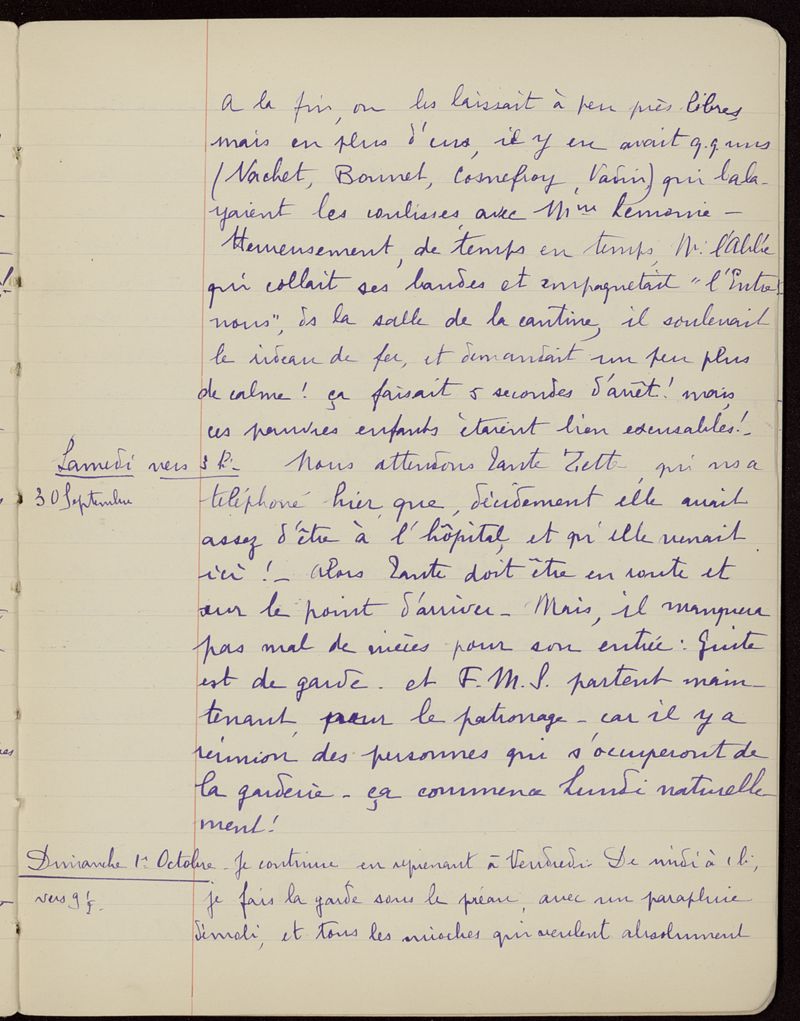 A la fin, on les laissait à peu près libres,
mais en plus d'eux, il y en avait q.q uns
(Vachet, Bonnet, Cosnefroy, Vadin) qui bala-
yaient les coulisses avec Mme Lemonie -
Heureusement, de temps en temps, Mr l'Abbé
qui collait ses bandes et empaquetait "l'Entre-
nous", ds la salle de la cantine, il soulevait
le rideau de fer, et demandait un peu plus
de calme! ça faisait 5 secondes d'arrêt! mais,
ces pauvres enfants étaient bien excusables! -
Samedi vers 3 h. - Nous attendons Tante Zette, qui ns a
30 Septembre téléphoné hier que, décidément elle avait
assez d'être à l'hôpital, et qu'elle venait
ici! - Alors Tante doit être en route et
sur le point d'arriver - Mais, il manquera
pas mal de nièces pour son entrée: Guite
est de garde. et F.M.S. partent main-
tenant, pour le patronage - car il y a
réunion des personnes qui s'occuperont de
la garderie - ça commence Lundi naturelle-
ment!
Dimanche 1er Octobre - Je continue en reprenant à Vendredi - De midi à 1 h,
vers 9h je fais la garde sous le préau, avec un parapluie
démoli, et tous les mioches qui veulent absolument